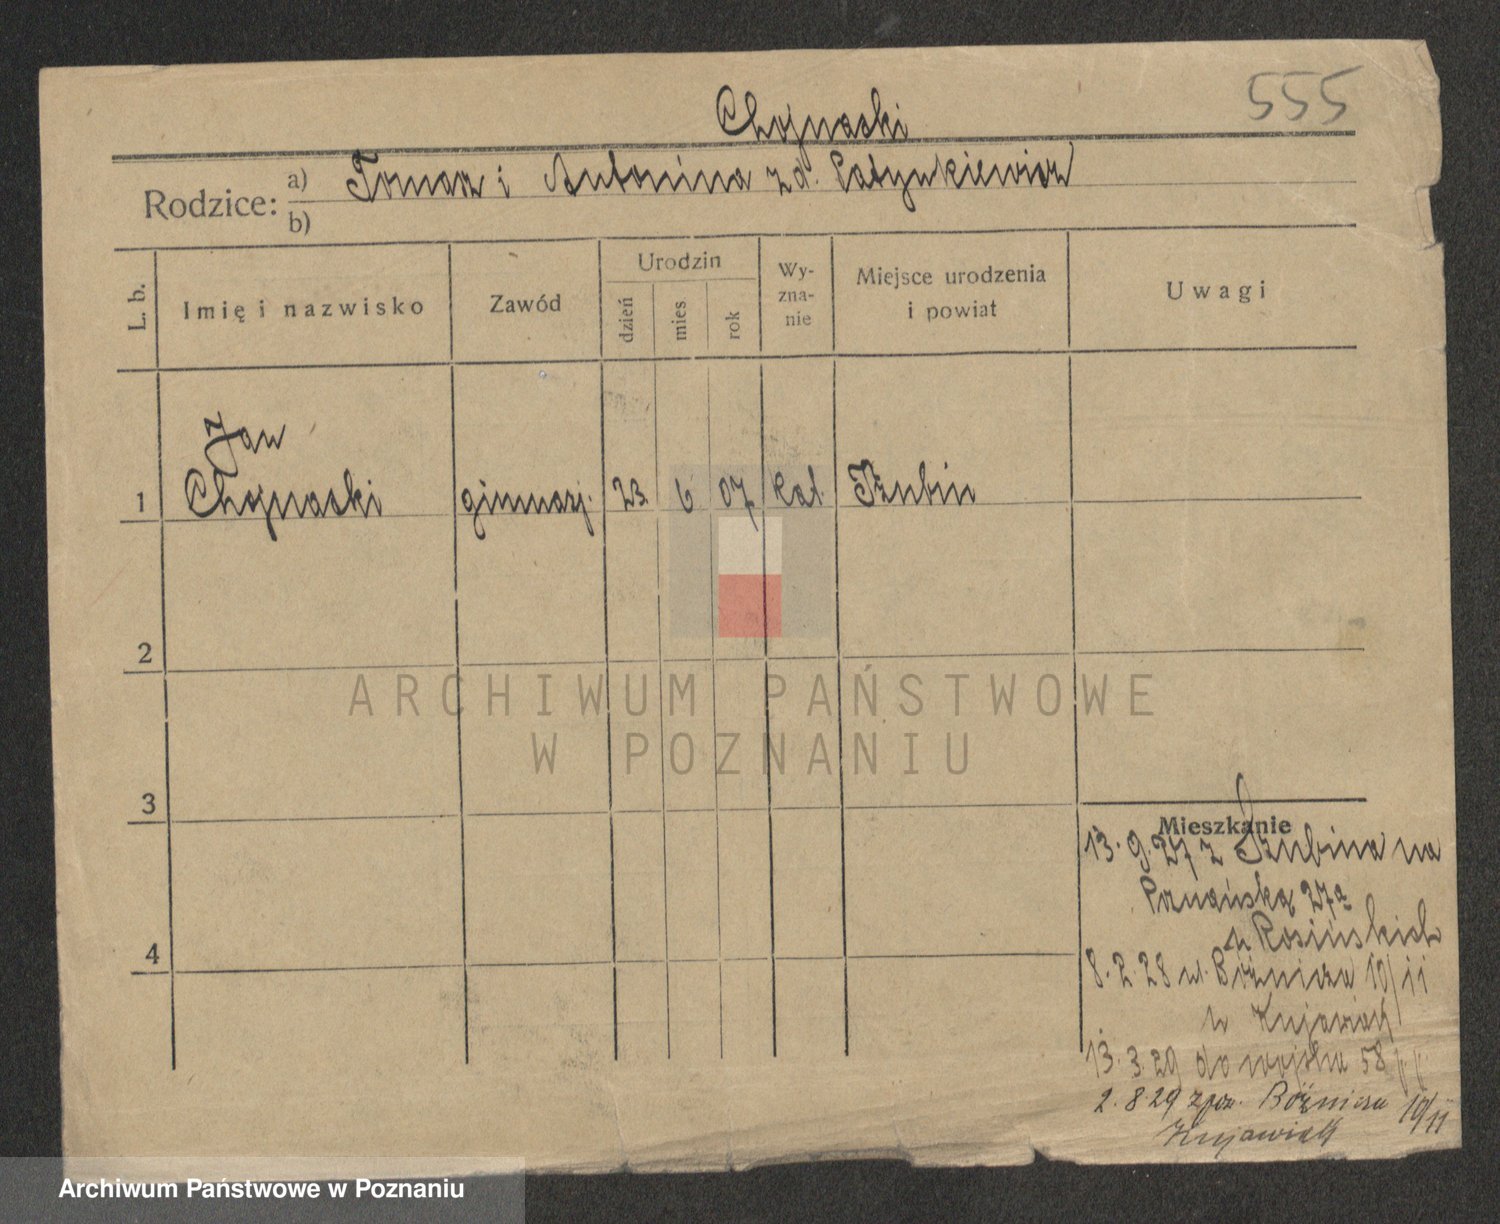 555
Chojnacki
Rodzice: a) Tomasz i Antonina zd.
b)
L. b. Imię i nazwisko Zawód Urodzin dzień mies rok Wyznanie Miejsce urodzenia i powiat Uwagi
Jan
1 Chojnacki gimnazj. 23. 6 07 kat. Szubin
2
3
4
Mieszkanie
13.9.27 z Szubina na
Poznańską 27a
u Rosińskich
8.2.28 ul. Bóżnicza 10/11
u Kujawiak
13.3.29 do wojska 58 p.p.
2.8.29 Bóżnicza 10/11
Kujawiak
ARCHIWUM PAŃSTWOWE
W POZNANIU
Archiwum Państwowe w Poznaniu